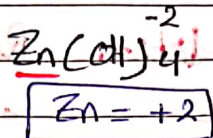 Zn(OH)₄⁻²
Zn = +2